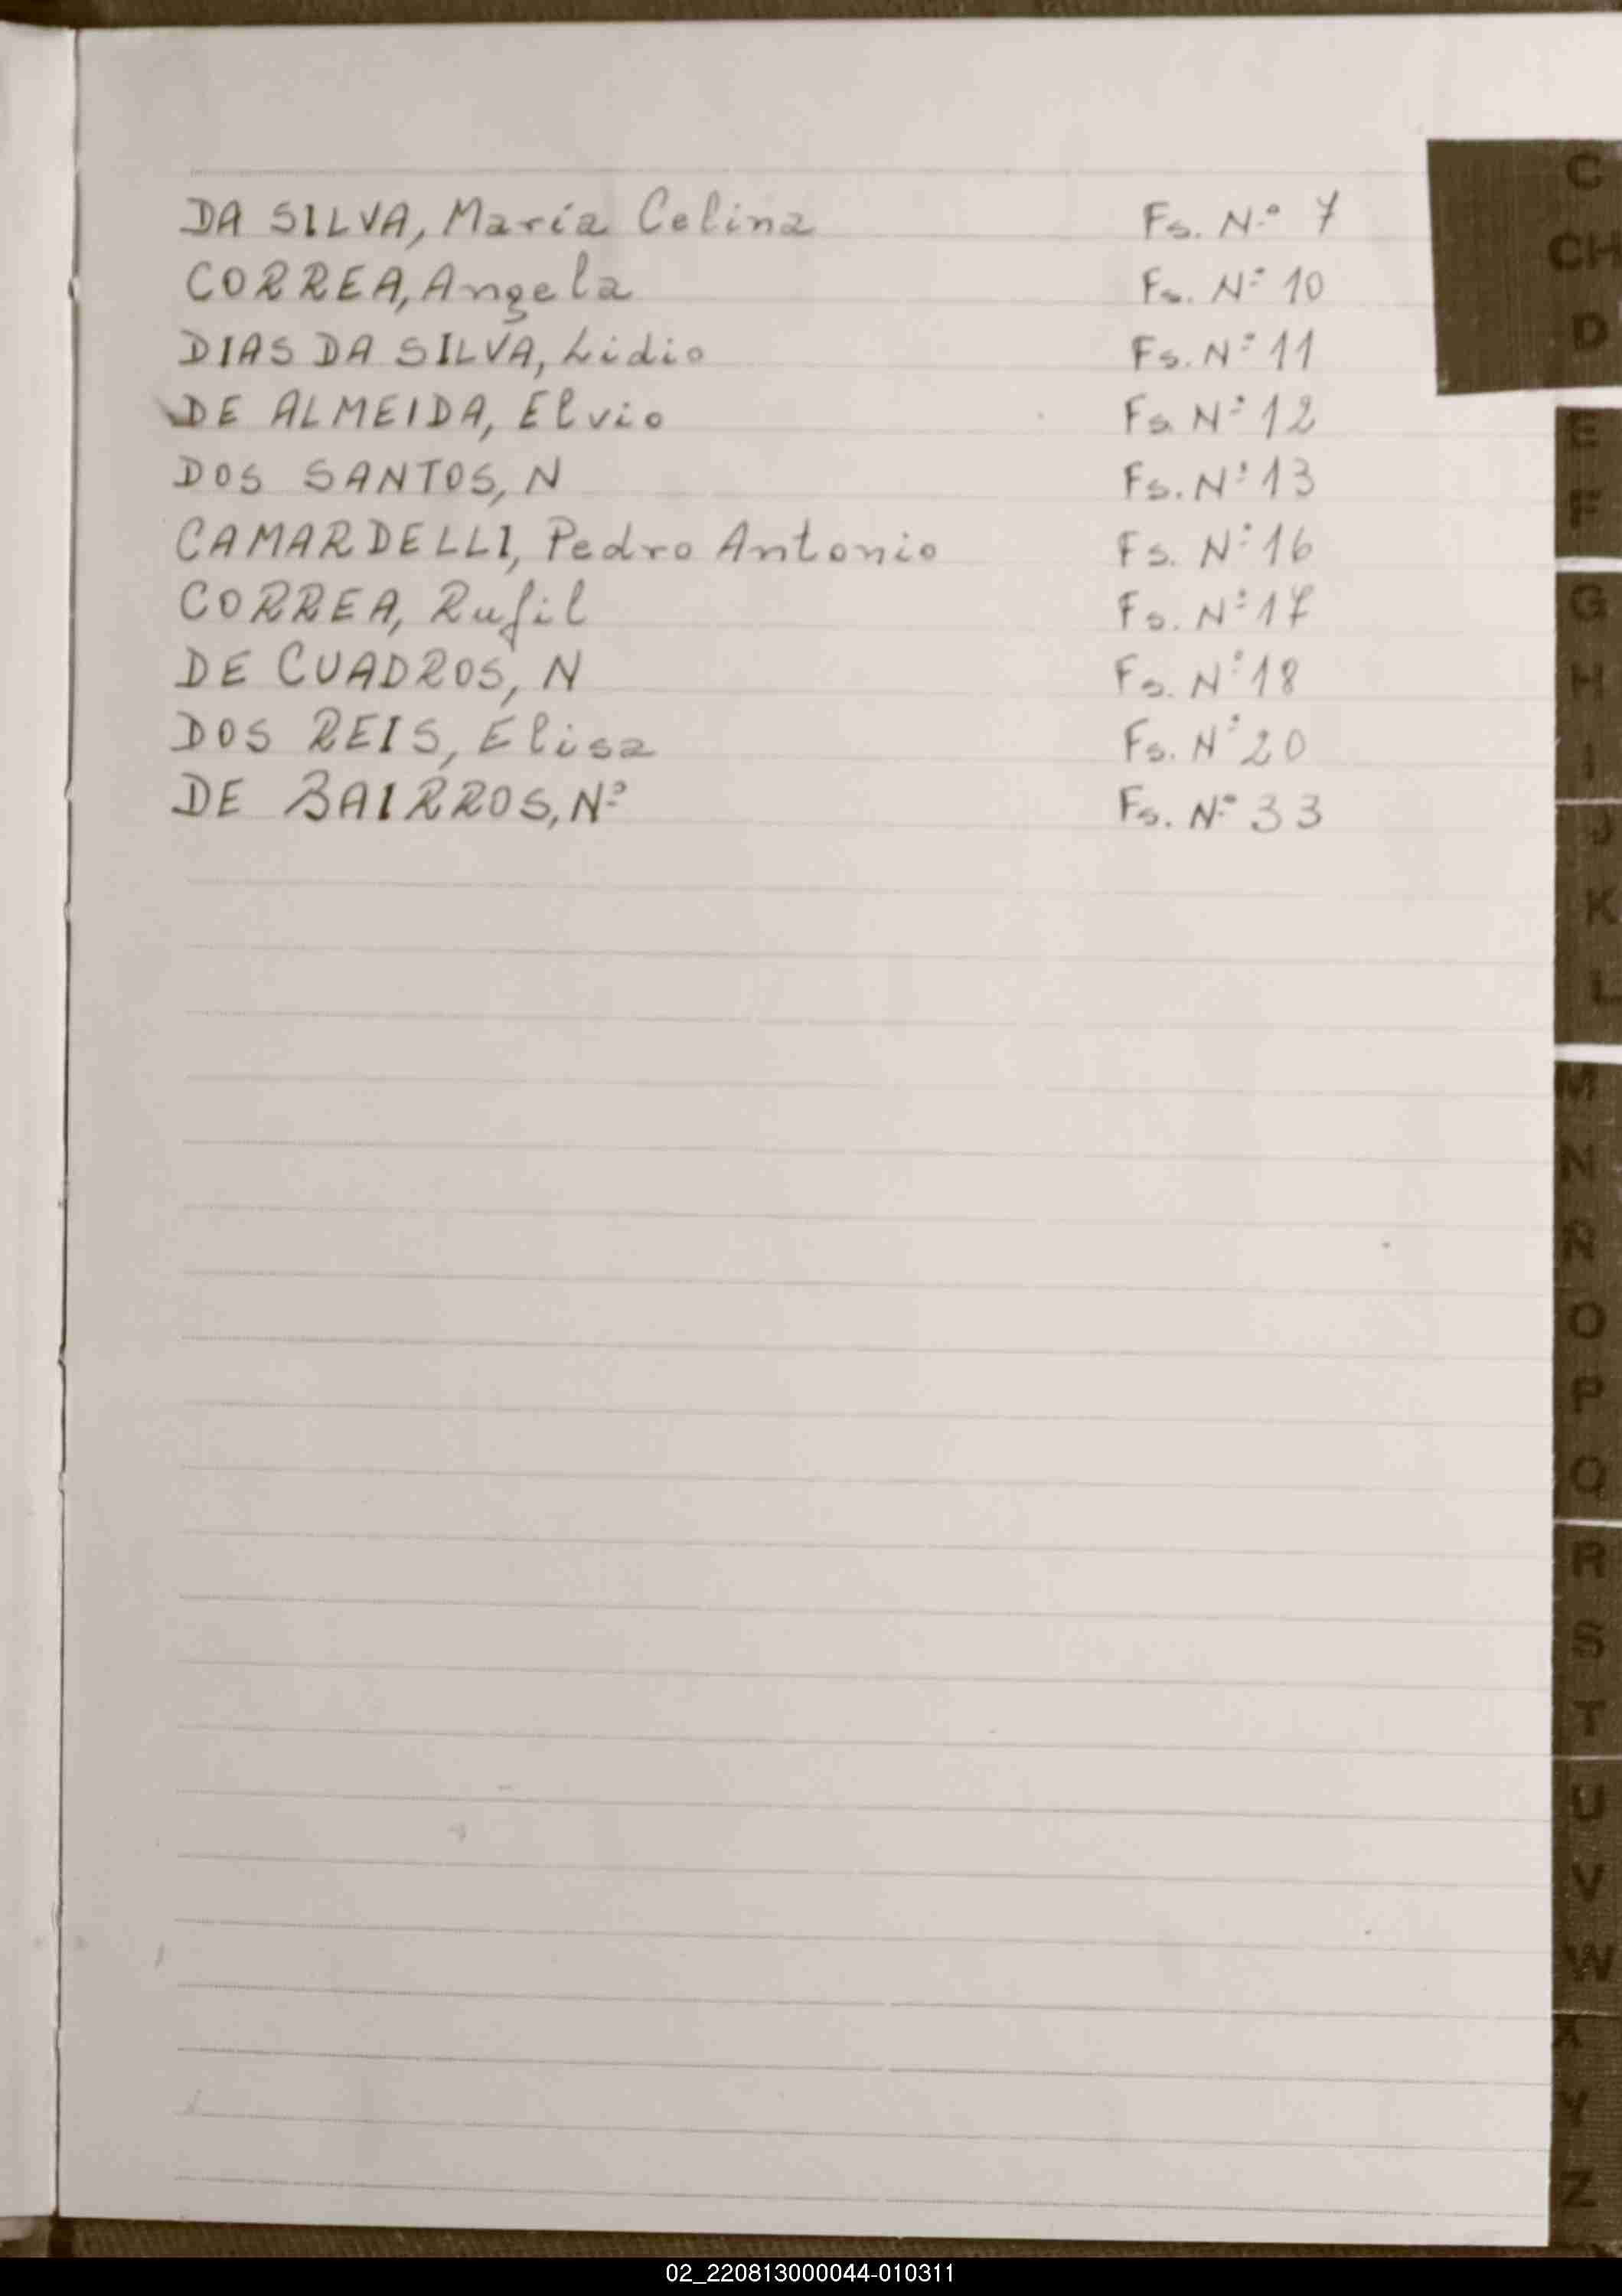 DA SILVA, María Celina Fs. N.º 7
CORREA, Angela Fs. Nº 10
DIAS DA SILVA, Lidio Fs. Nº 11
DE ALMEIDA, Elvio Fs. Nº 12
DOS SANTOS, N Fs. Nº 13
CAMARDELLI, Pedro Antonio Fs. Nº 16
CORREA, Rufil Fs. Nº 17
DE CUADROS, N Fs. Nº 18
DOS REIS, Elisa Fs. Nº 20
DE BAIRROS, Nº Fs. Nº 33
C
CH
D
E
F
G
H
I
J
K
L
M
N
Ñ
O
P
Q
R
S
T
U
V
W
X
Y
Z
02_220813000044-010311